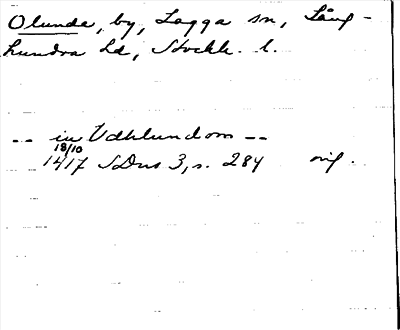 Olunda, by, Lagga sn, Lång-
hundra hd, Stockh. l.
-- in Vdhlundom --
18/10
1417 SDns 3, s. 284 orig.